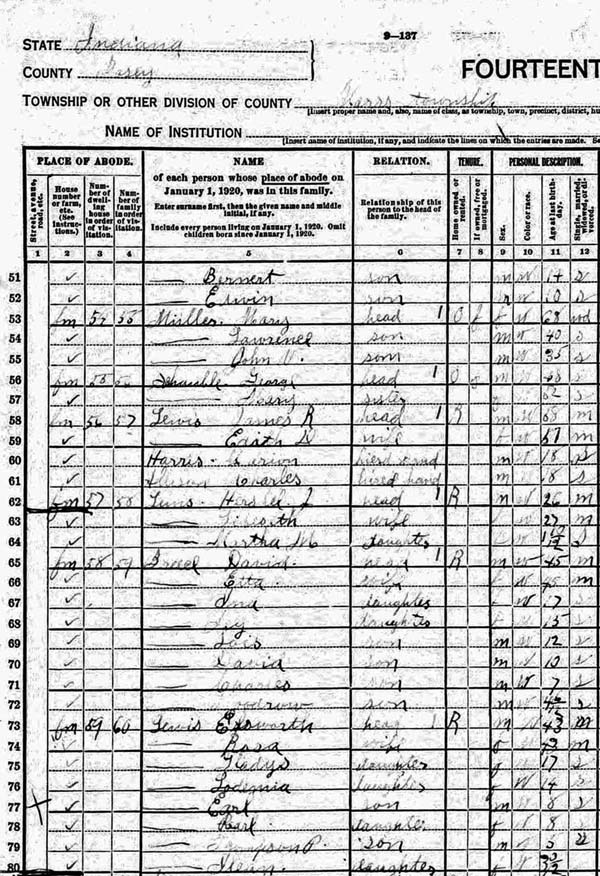 9—137
STATE Indiana
COUNTY Posey
FOURTEENT
TOWNSHIP OR OTHER DIVISION OF COUNTY Harris township
[Insert proper name and, also, name of class, as township, town, precinct, district, hu
NAME OF INSTITUTION
[Insert name of institution, if any, and indicate the lines on which the entries are made. Se
PLACE OF ABODE. NAME RELATION. TENURE. PERSONAL DESCRIPTION.
Street, avenue, road, etc. House number or farm, etc. (See instructions.) Number of dwelling house in order of visitation. Number of family in order of visitation. of each person whose place of abode on January 1, 1920, was in this family. Enter surname first, then the given name and middle initial, if any. Include every person living on January 1, 1920. Omit children born since January 1, 1920. Relationship of this person to the head of the family. Home owned or rented. If owned, free or mortgaged. Sex. Color or race. Age at last birthday. Single, married, widowed, or divorced.
1 2 3 4 5 6 7 8 9 10 11 12
51 ✓ — Bernert son m w 14 s
52 ✓ — Erwin son w 10 s
53 fm 54 55 Miller Mary head 1 O f f w 68 wd
54 ✓ — Lawrence son m w 40 s
55 ✓ — John W. son m w 35 s
56 fm George head 1 O m w s
57 ✓ — Mary sister 62 s
58 fm 56 57 Lewis James R head 1 R m w 68 m
59 ✓ — Edith D wife f w 57 m
60 Harris hired hand m w 18 s
61 Charles hired hand m w 18 s
62 fm 57 58 Hershel J head 1 R m w 26 m
63 ✓ — wife f w 27 m
64 ✓ — Martha M daughter f w s
65 fm 58 59 David head 1 R m w 45 m
66 ✓ — Etta wife f w 45 m
67 ✓ — Ina daughter f w 17 s
68 ✓ — daughter f w 15 s
69 ✓ — Lois son m w 12 s
70 ✓ — David son m w 10 s
71 ✓ — Charles son m w 7 s
72 ✓ — Woodrow son m w s
73 fm 59 60 Lewis Elsworth head 1 R m w 43 m
74 ✓ — Rosa wife f w 43 m
75 ✓ — Gladys daughter f w 17 s
76 ✓ — daughter f w 14 s
77 ✓ — Earl son m w 8 s
78 ✓ — Pearl daughter f w 8 s
79 ✓ — Thompson P. son m w 5 s
80 ✓ — daughter f w